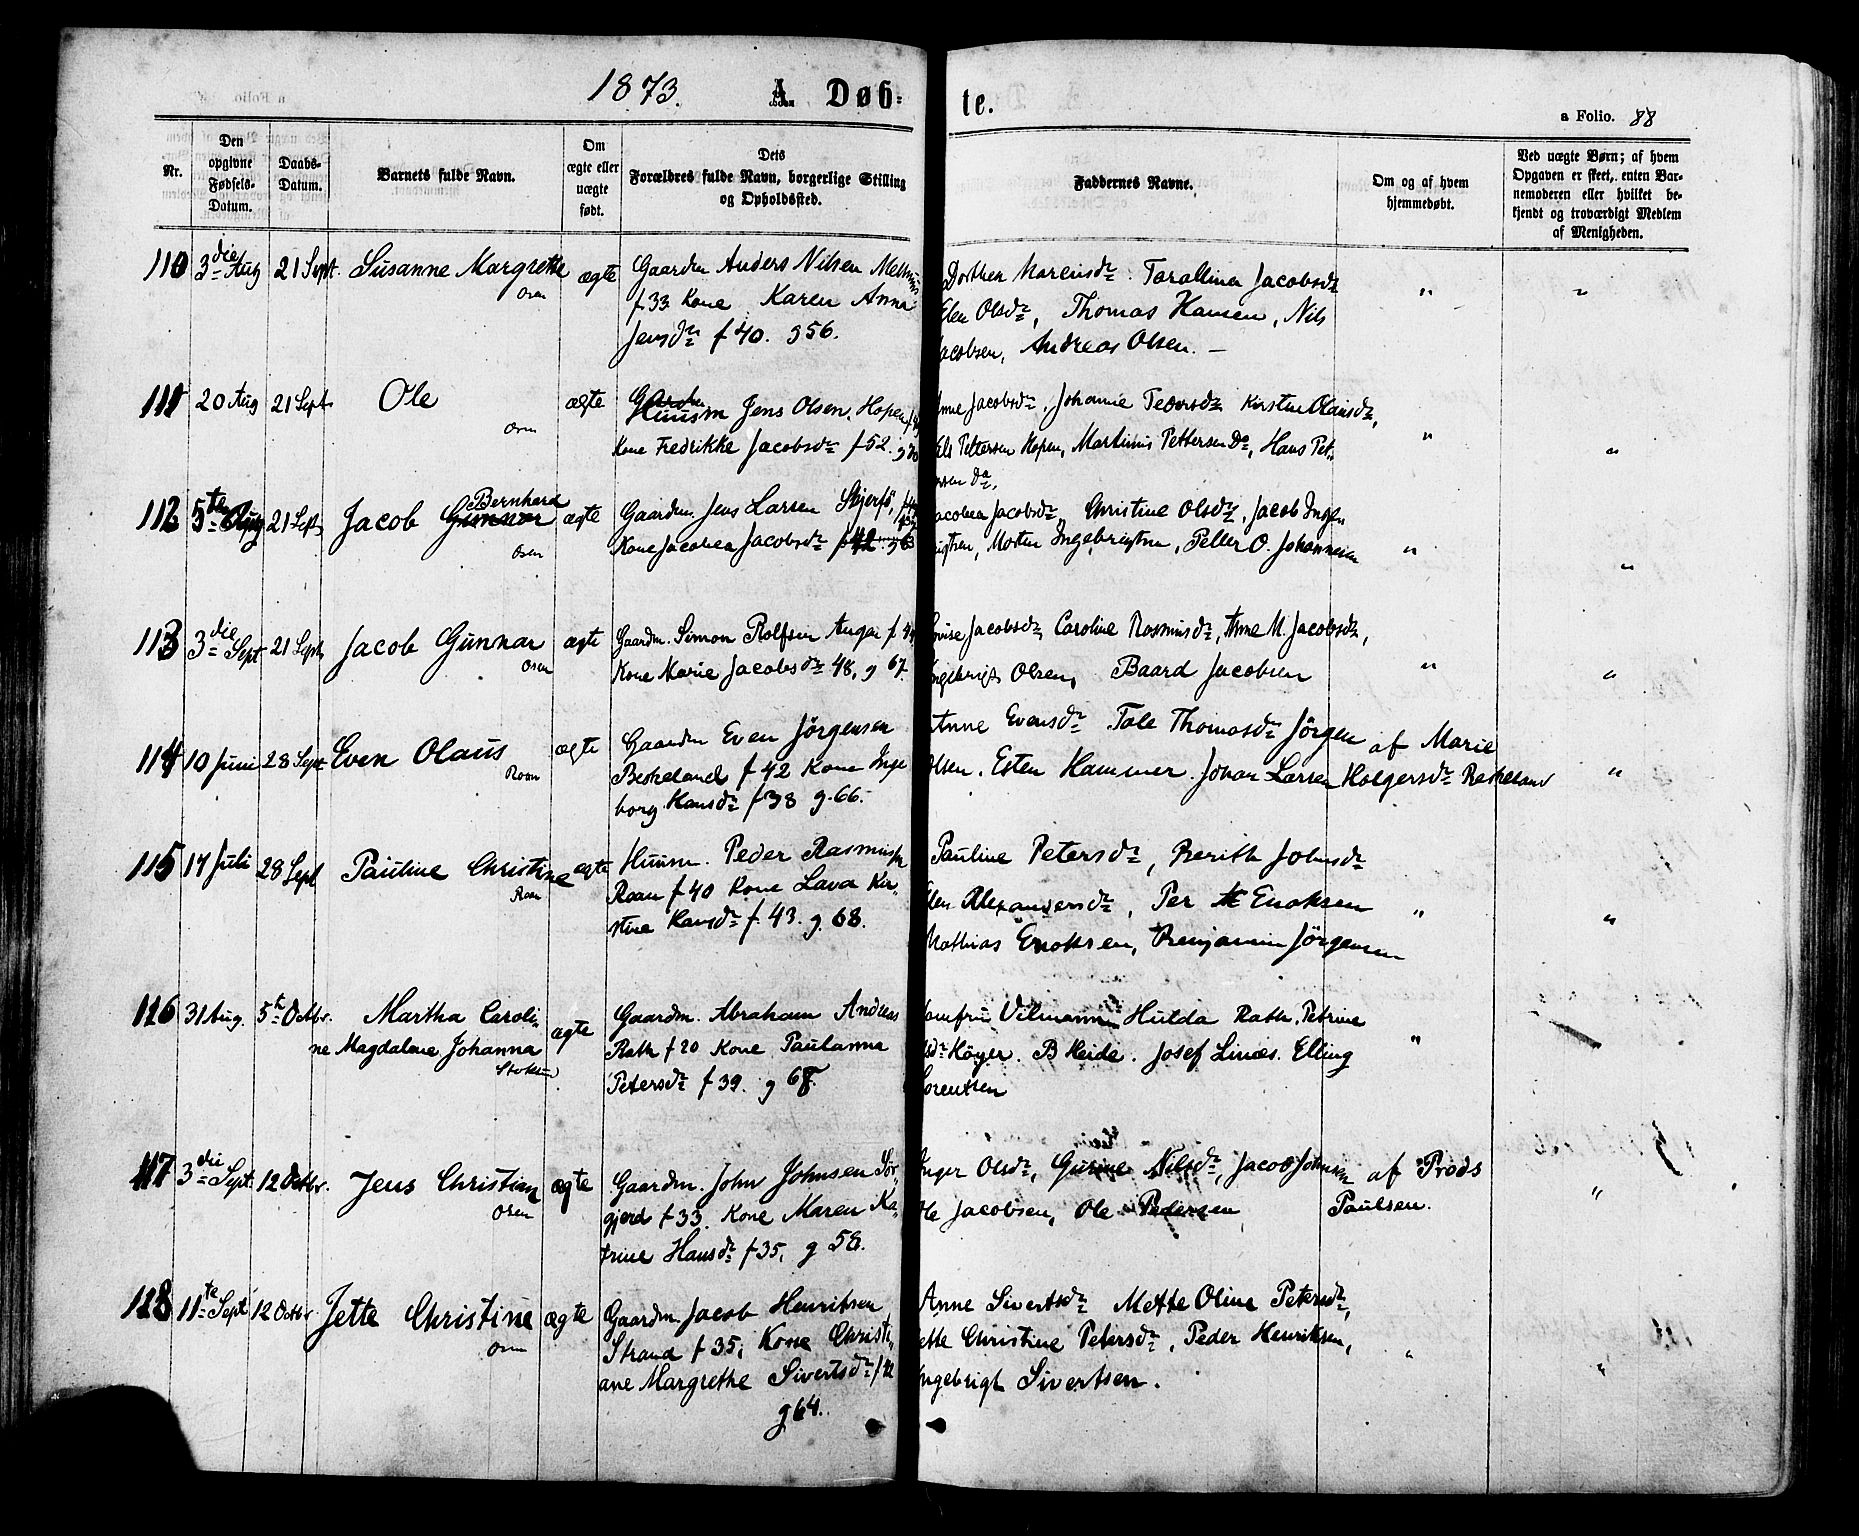 1873. A Døb= te. a Folio. 88
Nr.
Den opgivne Fødsels-Datum.
Daabs-Datum.
Barnets fulde Navn.
Om ægte eller uægte født.
Dets Forældres fulde Navn, borgerlige Stilling og Opholdssted.
Faddernes Navne.
Om og af hvem hjemmedøbt.
Ved uægte Børn; af hvem Opgaven er skeet, enten Barnemoderen eller hvilket bekjendt og troværdigt Medlem af Menigheden.
110 3die Aug 21 Sept. Susanne Margrethe Osen ægte
Gaardm Anders Nilsen
f. 33 Kone Karen Anna
Jensdr f 40. g 56.
Dorthea Marensdr. Jacobsdr
Elen Olsdr, Thomas Hansen, Nils
Jacobsen, Andreas Olsen. —
" "
111 20 Aug 21 Sept Ole Osen ægte
Huusm Jens Olsen, Hopen
Kone Fredrikke Jacobsdr f 52.
Anne Jacobsdr, Johanne Kirstine Olausdr,
Nils Pettersen Hopen, Martinus Pettersen Do, Hans Pet-
tersen Do.
" "
112 5te Aug 21 Sept Jacob Gunnar Bernhard Osen ægte
Gaardm. Jens Larsen
Kone Jacobea Jacobsdr f 42. g 63
Jacobea Jacobsdr, Christine Olsdr, Jacob Inge-
brigtsen, Morten Ingebrigtsen, Petter O. Johannesen
" "
113 3die Sept 21 Sept Jacob Gunnar Osen ægte
Gaardm. Simon Rolfsen
Kone Marie Jacobsdr 48, g 67.
Lovise Jacobsdr, Caroline Rasmusdr, Anne M. Jacobsdr,
Ingebrigt Olsen, Baard Jacobsen
" "
114 10 Juni 28 Sept Even Olaus Roan ægte
Gaardm Even Jörgensen
Beskeland f 42 Kone Inge
borg Hansdr f 38 g. 66.
Anne Evensdr Tale Thomasdr Jörgen
Olsen. Esten Hammer. Johan Larsen
af Marie
Holgersdr Beskeland
"
115 17 Juli 28 Sept Pauline Christine Roan ægte
Huusm. Peder Rasmusen
Roan f 40 Kone Lava Kir-
stine Hansdr f. 43. g. 68.
Pauline Petersdr, Berith Johnsdr
Elen Alexandersdr, Per Enoksen
Mathias Enoksen, Benjamin Jörgensen
" "
116 31 Aug. 5te Octbr. Martha Caroli-
ne Magdalene Johanna Stoksund ægte
Gaardm. Abraham Andreas
Rath f 20 Kone Paulanna
Petersdr f 39. g 68.
Jomfru Hulda Rath. Petrine
Höyer. B Heide. Josef Linæs. Elling
Lorentsen
"
117 3die Sept. 12 Octbr. Jens Christian Osen ægte
Gaardm. John Johnsen Sör-
gjerd f 33. Kone Maren Ka-
trine Hansdr f 35, g 58.
Inger Olsdr, Gurine Nilsdr, Jacob Johnsen
Ole Jacobsen, Ole Pedersen
af Prods
Paulsen.
"
118 11te Sept 12 Octbr. Jette Christine Osen ægte
Gaardm. Jacob Henriksen
Strand f 35, Kone Christi-
ane Margrethe Sivertsdr f 42
g 64.
Anne Sivertsdr Mette Oline Petersdr,
Jette Christine Petersdr, Peder Henriksen,
Ingebrigt Sivertsen.
" "